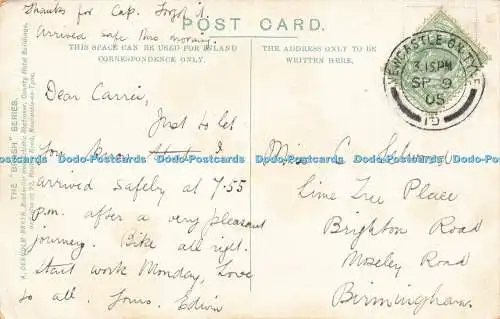 Thanks for Cap. Forgot it.
Arrived safe this morning.
POST CARD.
THIS SPACE CAN BE USED FOR INLAND
CORRESPONDENCE ONLY.
THE ADDRESS ONLY TO BE
WRITTEN HERE.
NEWCASTLE-ON-TYNE
3.15PM
SP 9
05
Dear Carrie,
Just to let
you know I
arrived safely at 7.55
p.m. after a very pleasant
journey. Bike all right.
Start work Monday, Love
to all. Yours. Edwin
Miss C
Lime Tree Place
Brighton Road
Moseley Road
Birmingham.
THE "BURGH" SERIES.
Dodo-Postcards Dodo-Postcards Dodo-Postcards Dodo-Postcards Dodo-Postcards Dodo-Postcards